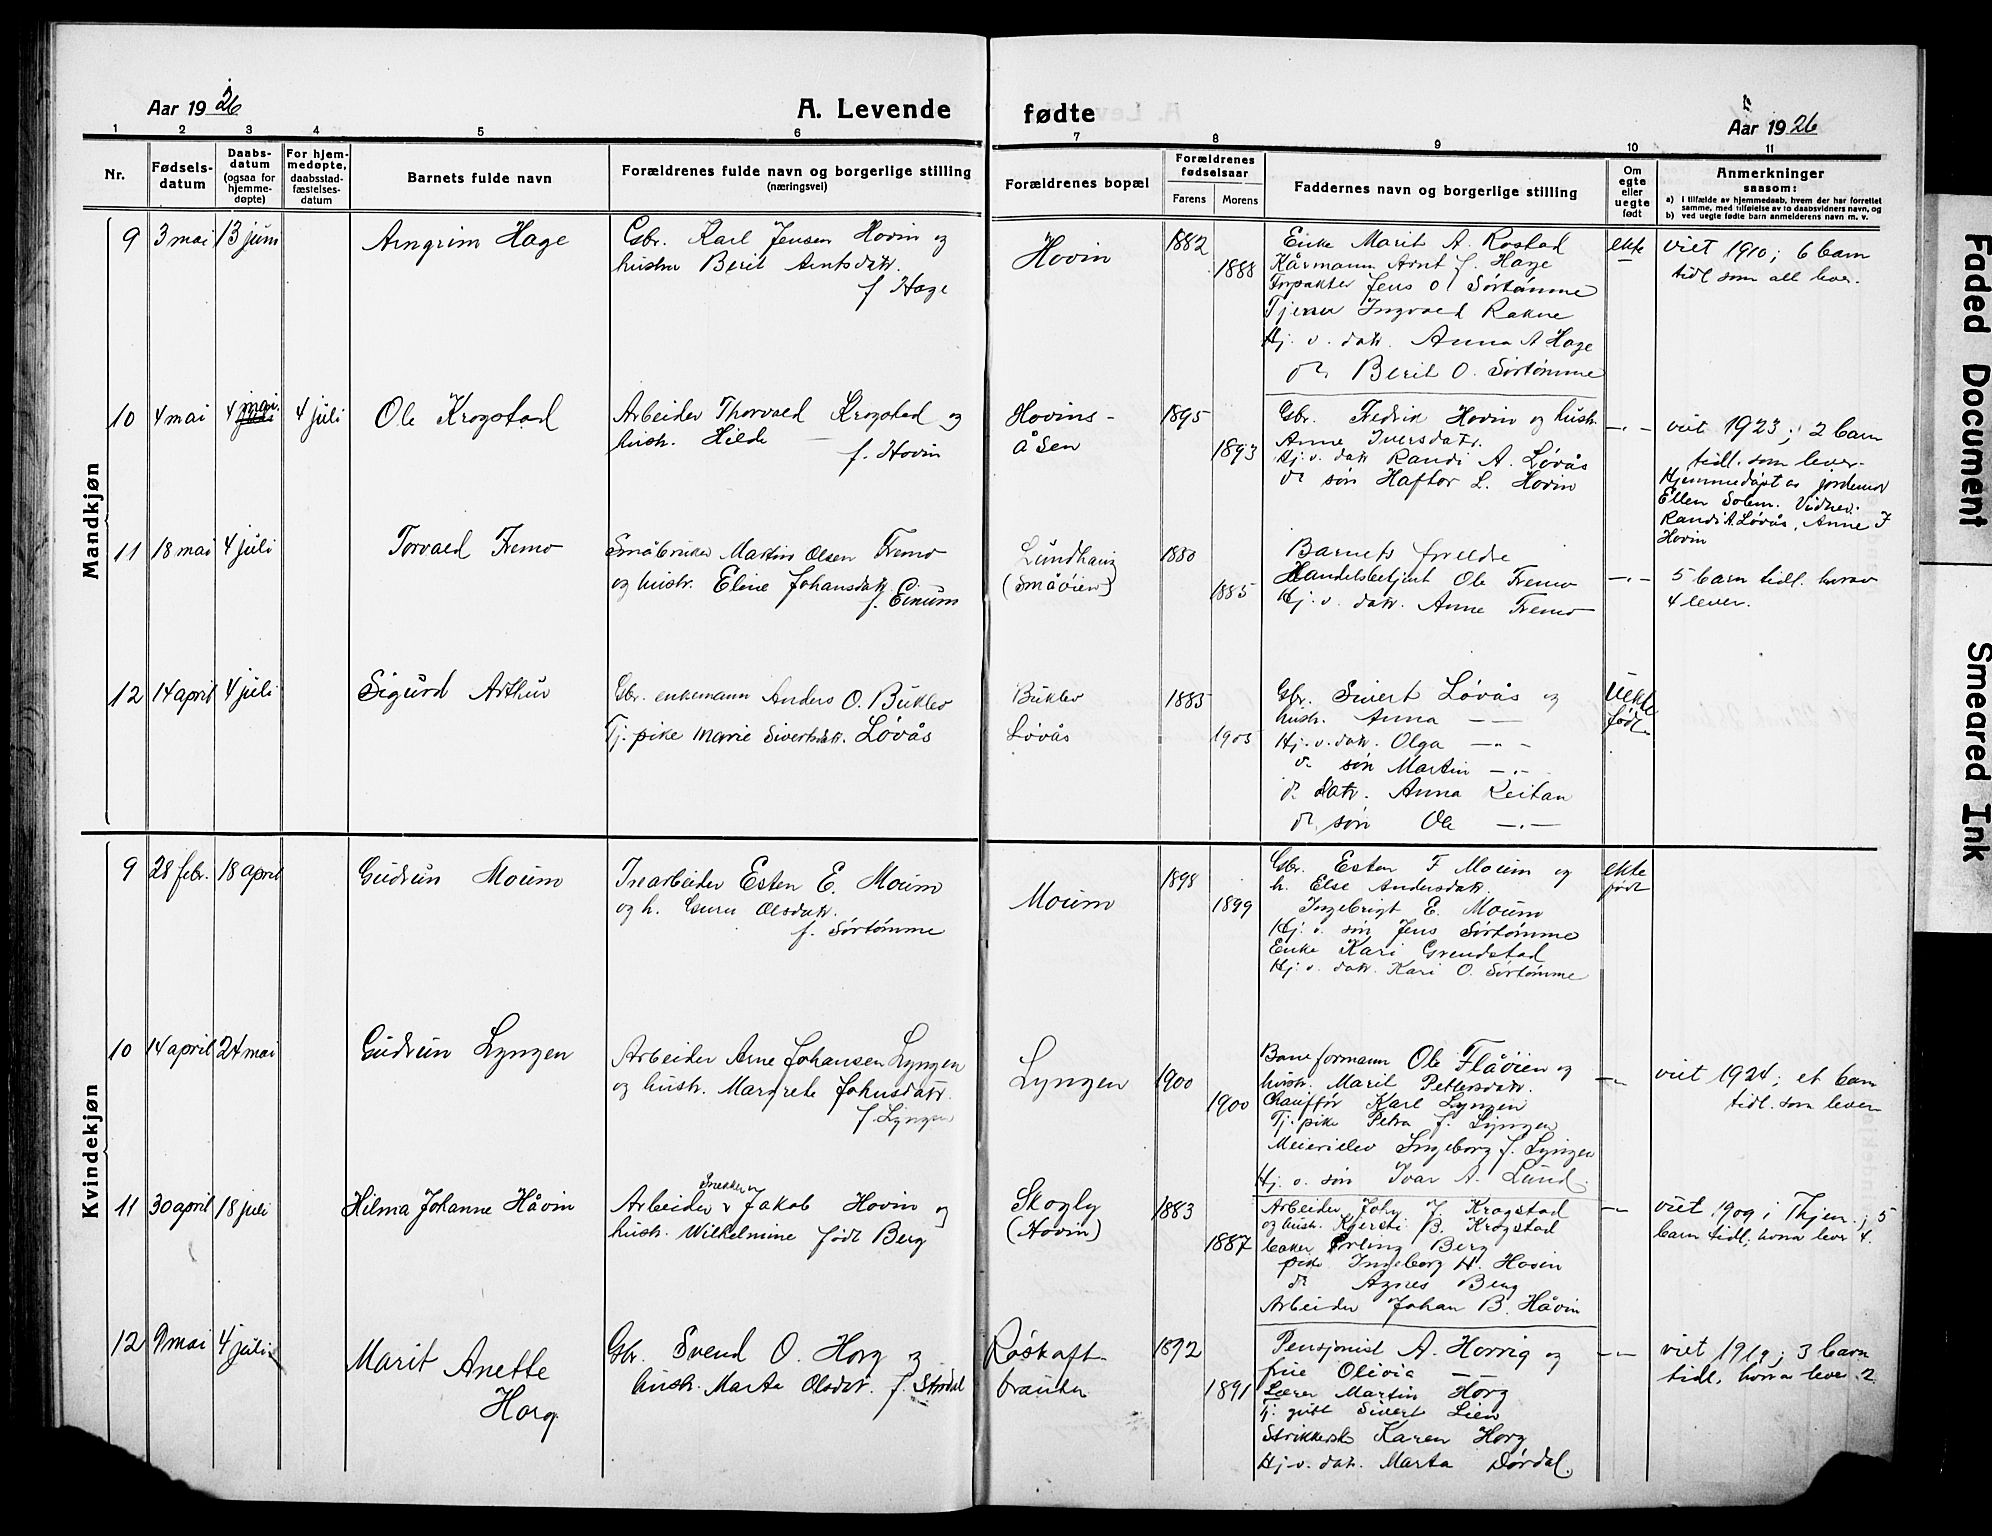 Aar 1926
A. Levende
fødte
Aar 1926
1 2 3 4 5 6 7 8 9 10 11
Nr.
Fødsels-
datum
Daabs-
datum
(ogsaa for
hjemme-
døpte)
For hjem-
medøpte,
daabsstad-
fæstelses-
datum
Barnets fulde navn
Forældrenes fulde navn og borgerlige stilling
(næringsvei)
Forældrenes bopæl
Forældrenes
fødselsaar
Farens Morens
Faddernes navn og borgerlige stilling
Om
egte
eller
uegte
født
Anmerkninger
saasom:
a) I tilfælde av hjemmedaab, hvem der har forrettet
samme, med tilføielse av to daabsvidners navn, og
b) ved uegte fødte barn anmelderens navn m. v.
Mandkjøn
9 3 mai 13 juni
Arngrim Hage
Gbr. Karl Jensen Hovin og
hustru Berit Arntsdatr.
f. Hage
Hovin
1882
1888
Enke Marit A. Rostad
Kårmann Arnt J. Hage
Forpakter Jens O. Sørtømme
Tjener Ingvald Rakne
Hj. v. datr. Anna A Hage
do Berit O. Sørtømme
ekte
viet 1910; 6 barn
tidl som all lever.
10 4 mai 4 mai 4 juli
Ole Krogstad
Arbeider Thorvald Krogstad og
hustr. Hilde —
f. Hovin
Hovins-
åsen
1895
1893
Gbr. Fredrik Hovin og hustr.
Anne Iversdatr.
Hj. v. datr Randi A. Løvås
do søn Haftor L. Hovin
—"—
viet 1923; 2 barn
tidl. som lever.
Hjemmedøpt av jordemor
Ellen Solem. Vidner:
Randi A. Løvås, Anne I
Hovin
11 18 mai 4 juli
Torvald Fremo
Småbruker Martin Olsen Fremo
og hustr. Eline Johansdatr.
f. Enum
Lundhaug
(Småøien)
1880
1885
Barnets foreldre
Handelsbetjent Ole Fremo
Hj. v. datr. Anne Fremo
—"—
5 barn tidl. hvorav
4 lever.
12 14 april 4 juli
Sigurd Arthur
Gbr. enkemann Anders O. Buklev
Tj. pike Marie Sivertsdatr. Løvås
Buklev
Løvås
1885
1905
Gbr. Sivert Løvås og
hustr. Anna — —
Hj. v. datr. Olga —"—
do søn Martin —"—
do datr. Anna Reitan
do søn Ole —"—
Uekte
født
Kvindekjøn
9 28 febr. 18 april
Gudrun Moum
Inarbeider Esten E. Moum
og h. Guru Olsdatr.
f. Sørtømme
Moum
1898
1899
Gbr. Esten F Moum og
h. Else Andersdatr.
Ingebrigt E. Moum
Hj. v. søn Jens Sørtømme
Enke Kari Grendstad
Hj. v. datr. Kari O. Sørtømme
ekte
født
10 14 april 24 mai
Gudrun Lyngen
Arbeider Arne Johansen Lyngen
og hustr. Margrete Johnsdatr.
f. Lyngen
Lyngen
1900
1900
Baneformann Ole Flåøien og
hustr. Marit Pettersdatr.
Chauffør Karl Lyngen
Tj. pike Petra J. Lyngen
Meierielev Ingeborg J. Lyngen
Hj. v. søn Ivar A. Lund
—"—
viet 1924; et barn
tidl. som lever
11 30 april 18 juli
Hilma Johanne Håvin
Snekker
Arbeider Jakob Hovin og
hustr. Wilhelmine født Berg
Skogly
(Hovin)
1883
1887
Arbeider John J. Krogstad
og hustr. Kjersti B. Krogstad
baker Erling Berg
pike Ingeborg H. Hovin
do Agnes Berg
Arbeider Johan B. Håvin
—"—
viet 1909 i Thjen.; 5
barn tidl., hvorav lever 4.
12 9 mai 4 juli
Marit Anette
Horg
Gbr. Svend O. Horg og
hustr. Marta Olsdtr. f. Størdal
Røskaft-
brauten
1892
1891
Pensjonist A. Horrig og
frue Olivia — —
Lærer Martin Horg
tj. gutt Sivert Lien
Strikkersk Karen Horg
Hj. v. datr. Marta Dørdal
—"—
viet 1919; 3 barn
tidl. hvorav lever 2.
Faded Document
Smeared Ink